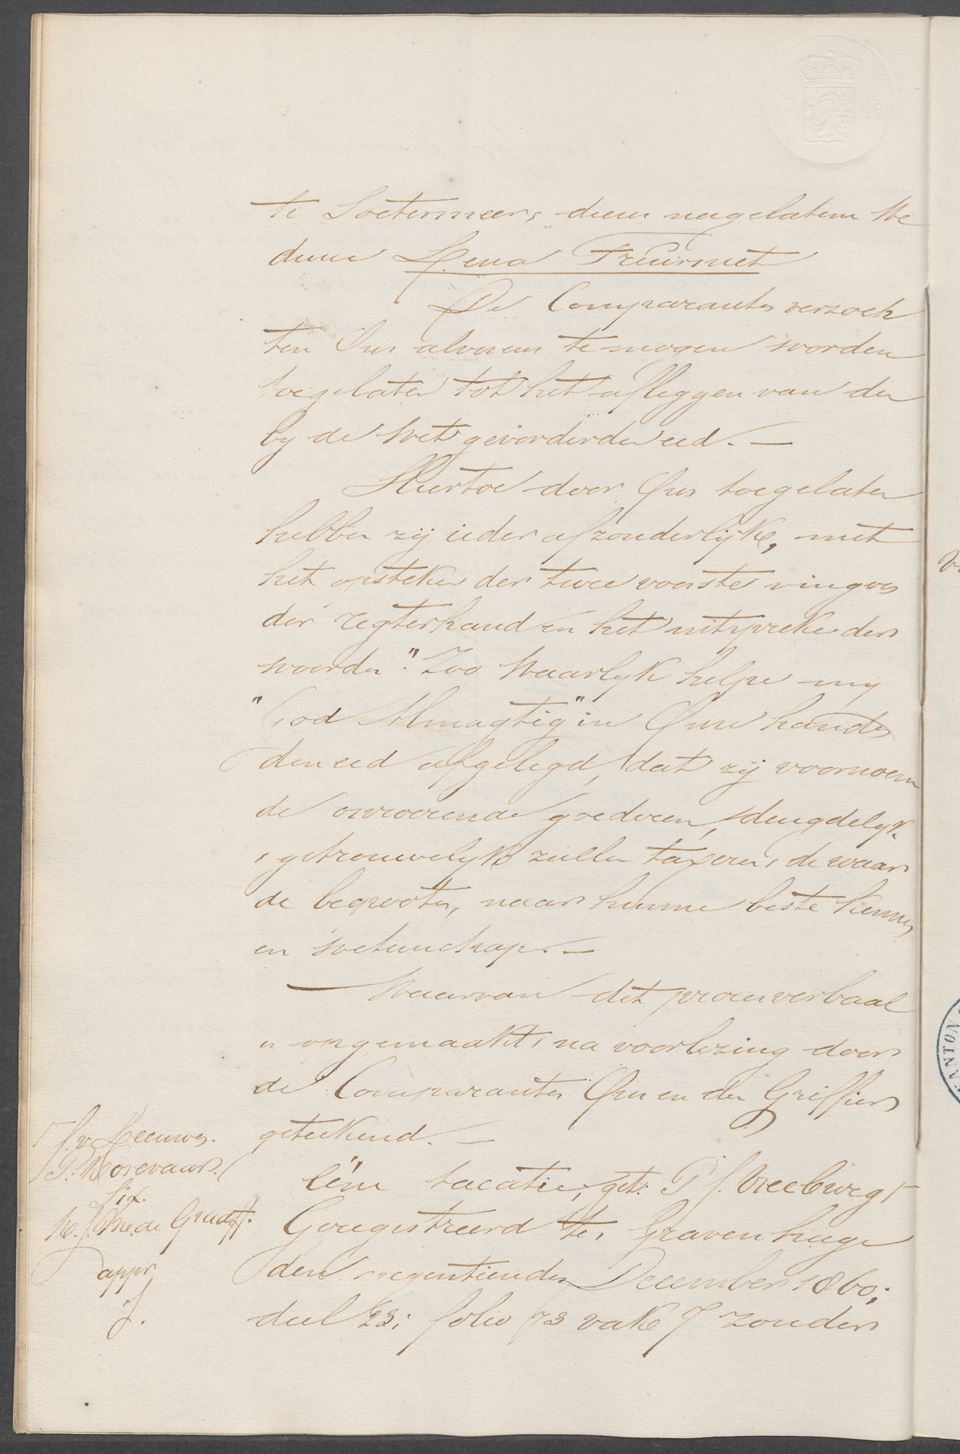 te Soetermeer, dienen nagelaten We
duwe Lena Treurniet
De Comparanten verzoch
ten Ons alvorens te mogen worden
toegelaten tot het afleggen van den
by de Wet gevorderden eed. —
Hiertoe door Ons toegelaten
hebben zij ieder afzonderlijk, met
het opsteken der twee voorste vingers
der regterhand en het uitspreken der
woorden "Zoo Waarlyk helpe my
"God Almagtig" in Onze handen
den eed afgelegd, dat zij voornoem
de onroerende goederen, deugdelyk
, getrouwelyk zullen taxeren, de waar
de begrooten, naar hunne beste kennis
en wetenschap. —
Waarvan dit procesverbaal
is opgemaakt, na voorlezing door
de Comparanten Ons en den Griffier
geteekend. —
Eene vacatie, get: P J. Vreeburgt
Geregistreerd te 's Gravenhage
den negentienden December 1860;
deel 23; folio 73 vak 7 zonder
J. v. Leeuwen.
P. Korevaar.
Six.
appr